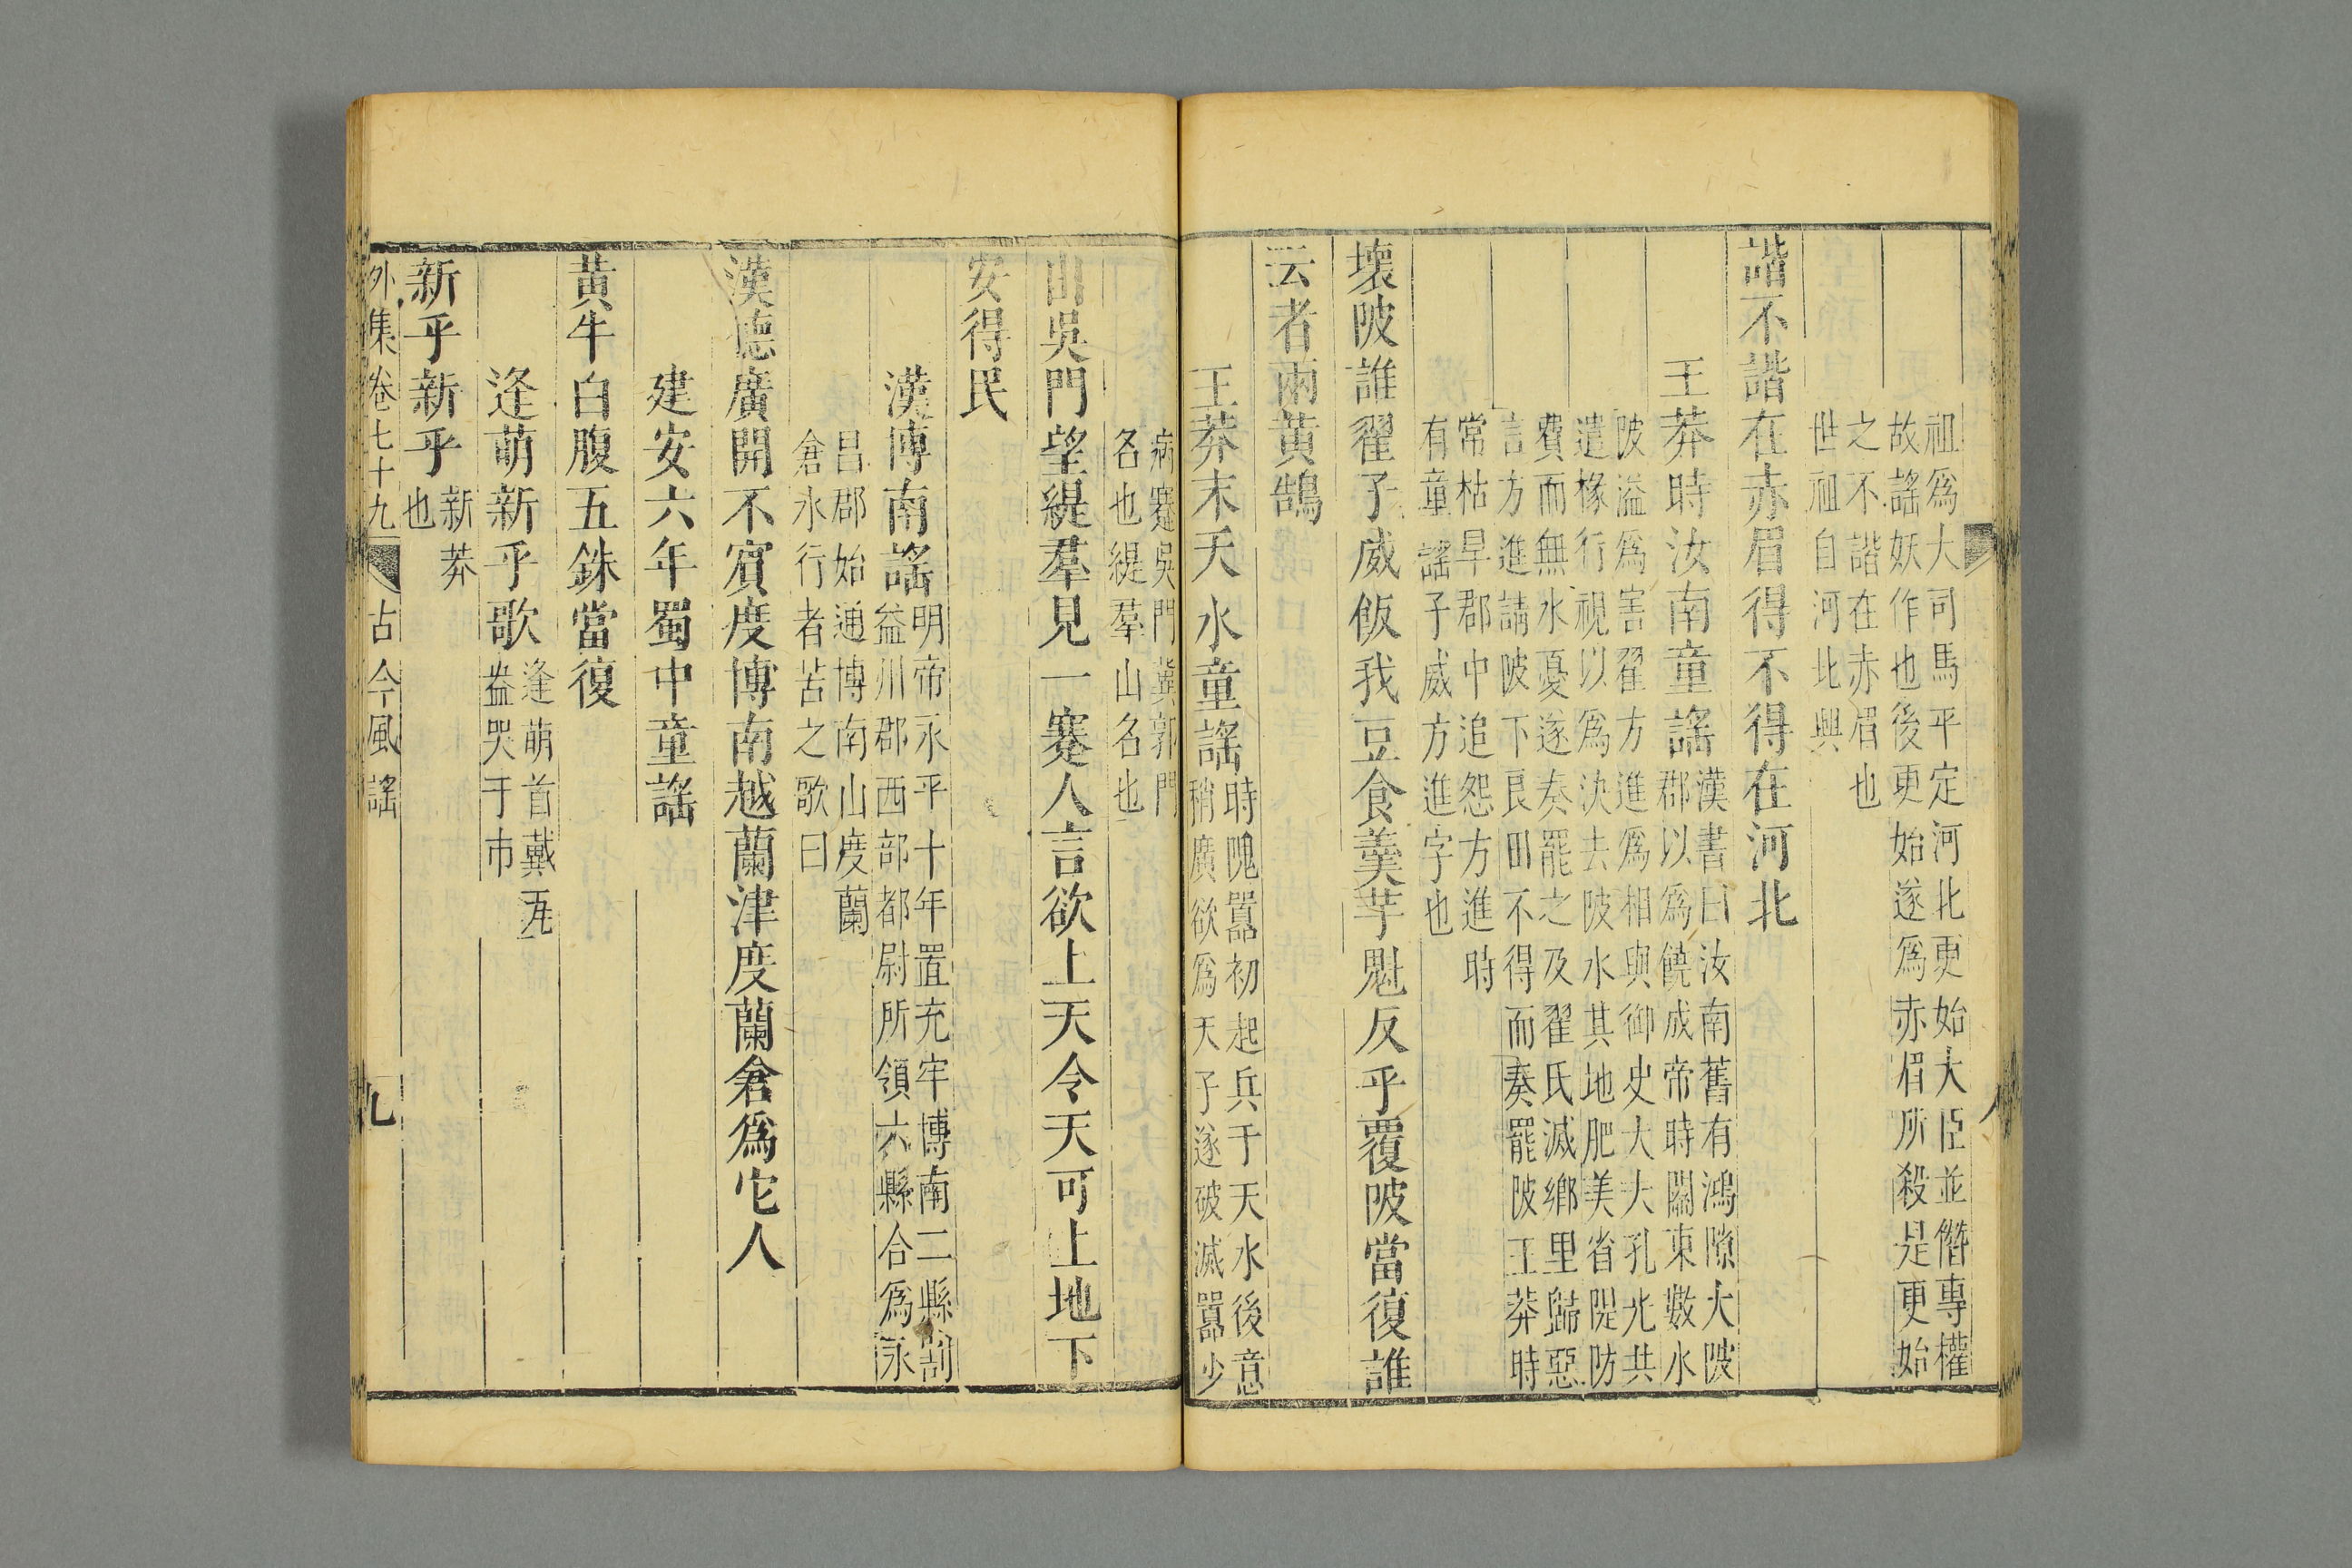 祖爲大司馬平定河北更始大臣並僭專權
故謠妖作也後更始遂爲赤眉所殺是更始
之不諧在赤眉也
世祖自河北興
諧不諧在赤眉得不得在河北
王莽時汝南童謠
漢書曰汝南舊有鴻隙大陂
郡以爲饒成帝時關東數水
陂溢爲害翟方進爲相與御史大大孔光共
遣椽行視以爲決去陂水其地肥美省隄防
費而無水憂遂奏罷之及翟氏滅鄉里歸惡
言方進請陂下良田不得而奏罷陂王莽時
常枯旱郡中追怨方進時
有童謠子威方進字也
壞陂誰翟子威飯我豆食羹芋魁反乎覆陂當復誰
云者兩黃鵠
王莽末天水童謠
時隗囂初起兵于天水後意
稍廣欲爲天子遂破滅囂少
病蹇吳門冀郭門
名也緹羣山名也
出吳門望緹羣見一蹇人言欲上天令天可上地下
安得民
漢博南謠
明帝永平十年置充牢博南二縣割
益川郡西部都尉所領六縣合爲永
呂郡始通博南山度蘭
倉水行者苦之歌曰
漢德廣開不賔度博南越蘭津度蘭倉爲它人
建安六年蜀中童謠
黃牛白腹五銖當復
逢萌新乎歌
逢萌首戴瓦
盎哭于市
新乎新乎
新莽
也
外集卷七十九
古今風謠
九